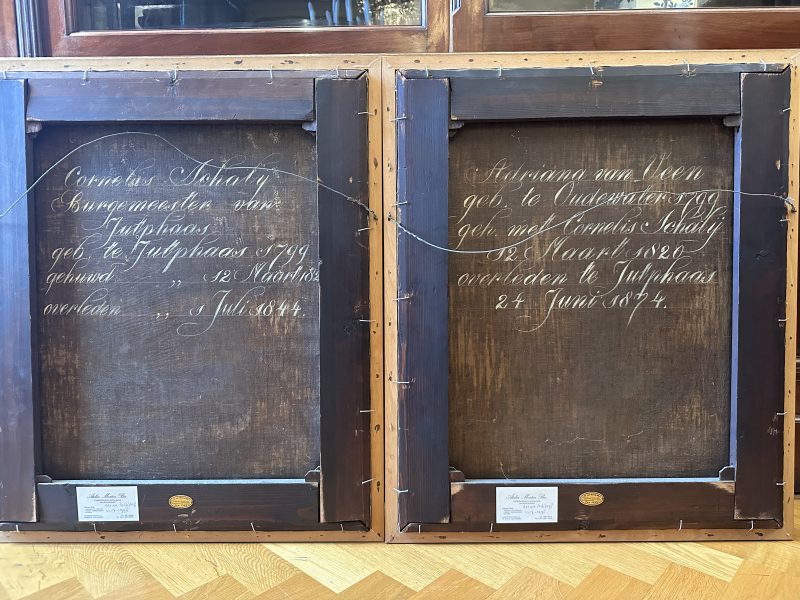 Cornelis Schalij
Burgemeester van
Jutphaas
geb. te Jutphaas 1799
gehuwd „ 12 Maart 182
overleden „ 1 Juli 1844.
Adriana van Veen
geb. te Oudewater 1799
geh. met Cornelis Schalij
12 Maart 1820
overleden te Jutphaas
24 Juni 1874.